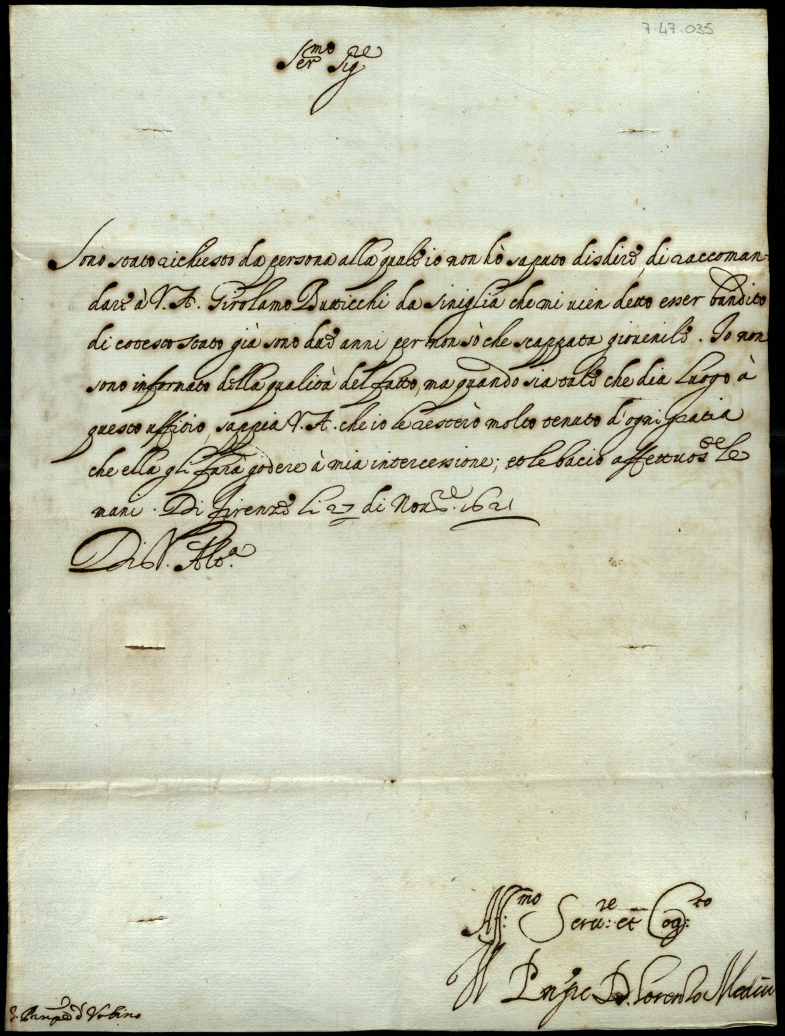 7-47-035
Ser.mo Sig.re
Sono stato richiesto da persona alla quale io non hò saputo disdire, di raccoman-
dare à V. A. Girolamo Butticchi da Siniglia che mi vien detto esser bandito
di cotesto stato già sono due anni per non sò che scappata giovenile. Io non
sono informato della qualità del fatto, ma quando sia tale che dia luogo à
questo uffitio, sappia V. A. che io le resterò molto tenuto d'ogni gratia
che ella gli farà godere à mia intercessione; et le bacio affettuos.te le
mani. Di Firenze li 27 di Nov.re 1621
Di V. Alt.a
Aff.mo Serv.re et Cog.to
Il Prn'pe D. Lorenzo Medici
d'Urbino